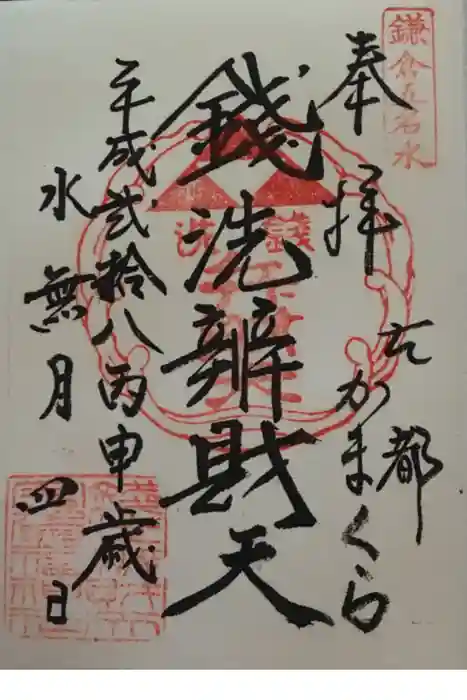 鎌倉五名水
奉拝
古都
かまくら
銭洗辨財天
平成弐拾八丙申歳
水無月四日